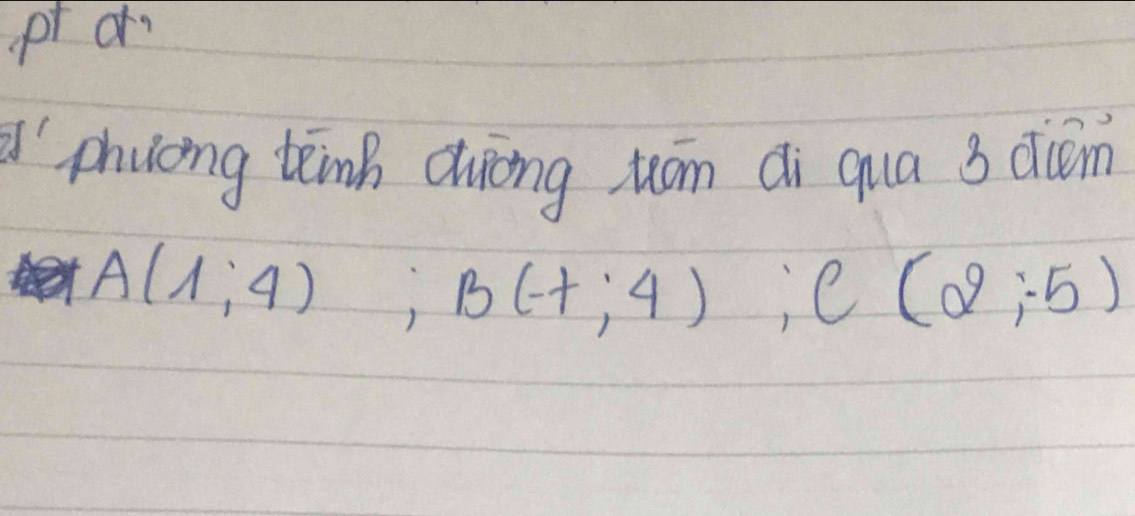 pt đt
phương trình đường tròn đi qua 3 điểm
A(1;4) ; B(-7;4) ; C(2;-5)